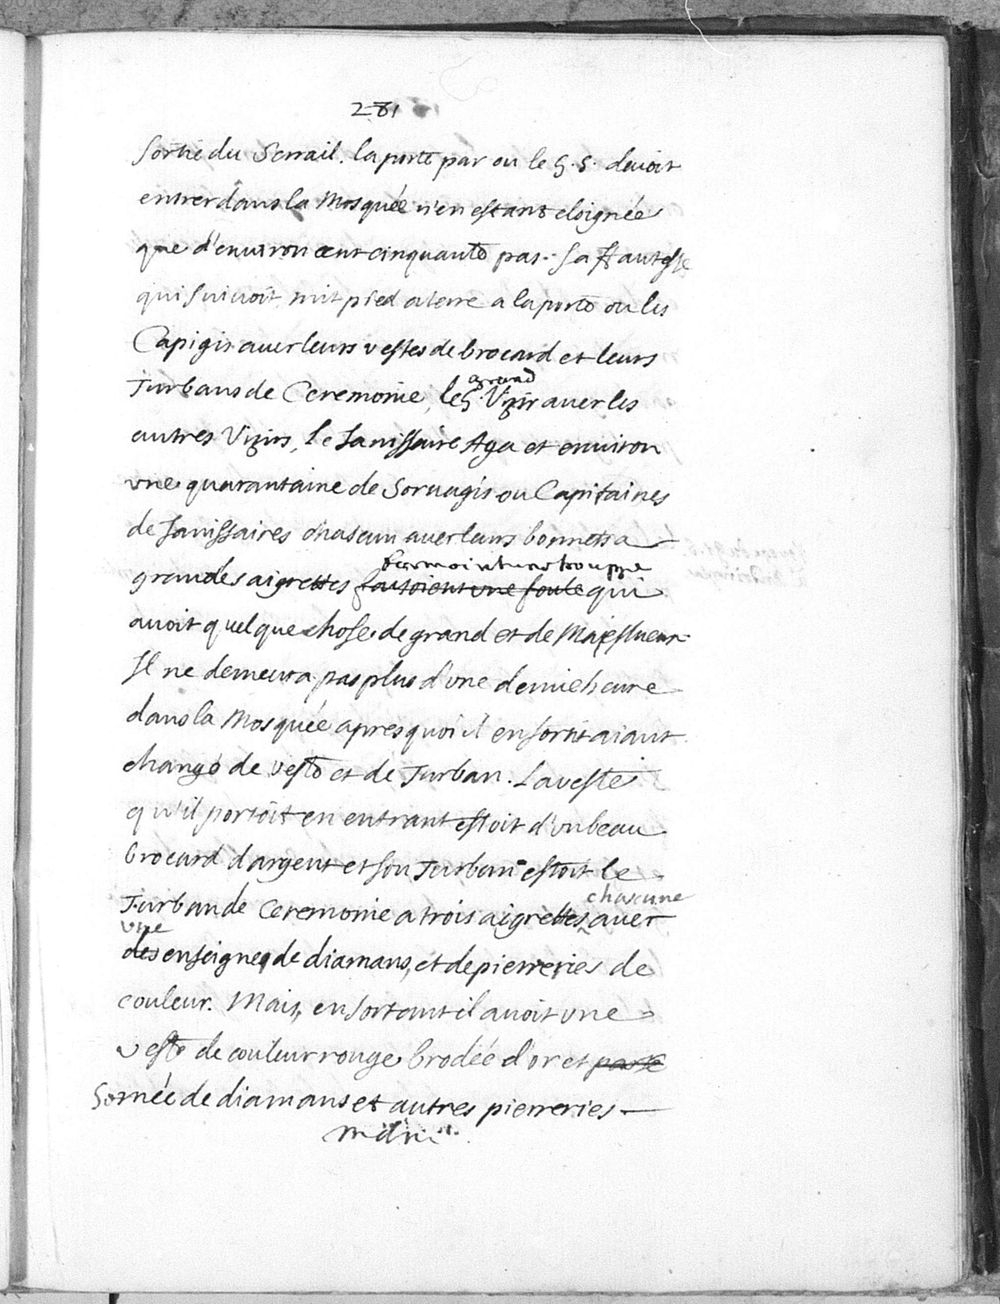 281
sortie du Serrail. la porte par ou le G. S. devoit
entrer dans la Mosquée n'en estant eloignée
que d'environ cent cinquante pas. Sa Hautesse
qui suivoit mit pied a terre a la porte ou les
Capigis avec leurs vestes de brocard et leurs
Turbans de Ceremonie, le G. grand Vizir avec les
autres Vizirs, le Janissaire Aga et environ
une quarantaine de Sorvagis ou Capitaines
de Janissaires chascun avec leurs bonnets a
formoient une trouppe
grandes aigrettes faisoient une foule qui
avoit quelque chose de grand et de Majestueux.
Il ne demeura pas plus d'une demie heure
dans la Mosquée apres quoi il en sortit aiant
changé de veste et de Turban. La veste
qu'il portoit en entrant estoit d'un beau
brocard d'argent et son Turban estoit le
chascune
Turban de Ceremonie a trois aigrettes avec
une
des enseignes de diamans, et de pierreries de
couleur. Mais, en sortant il avoit une
veste de couleur rouge brodée d'or et
ornée de diamans et autres pierreries